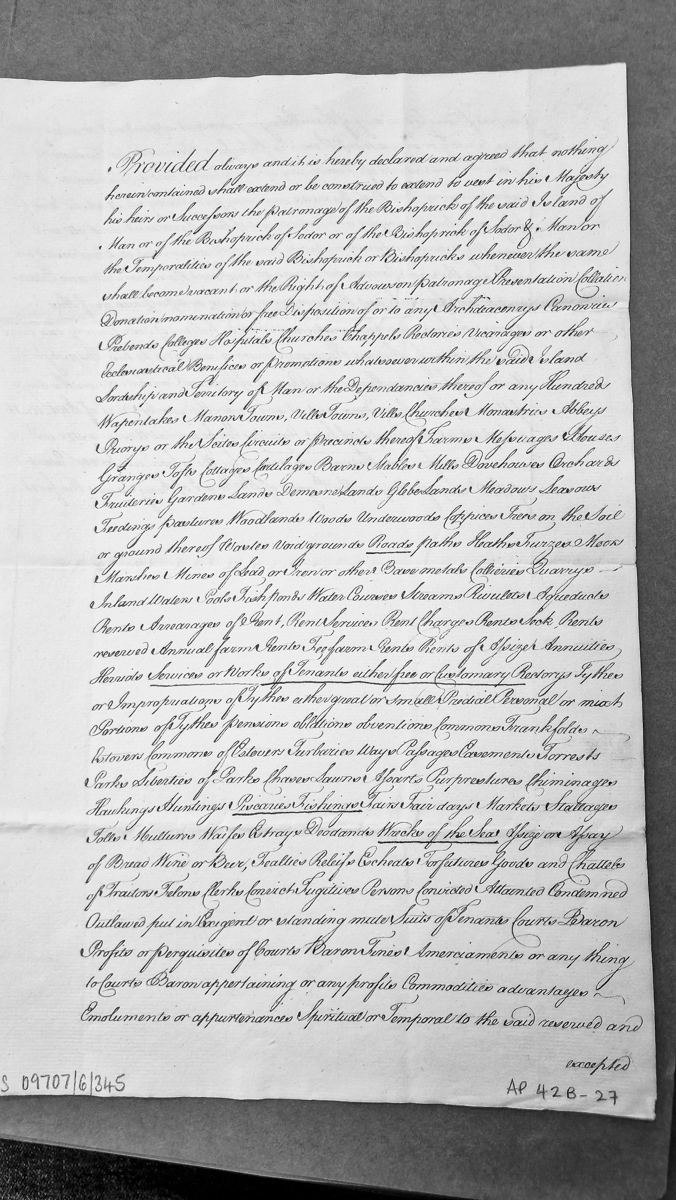 Provided always and it is hereby declared and agreed that nothing
herein contained shall extend or be construed to extend to vest in his Majesty
his heirs or Successors the patronage of the Bishoprick of the said Island of
Man or of the Bishoprick of Sodor or of the Bishoprick of Sodor & Man or
the Temporalities of the said Bishoprick or Bishopricks whenever the same
shall become vacant or the Right of Advowson patronage Presentation Collation
Donation nomination or free Disposition of or to any Archdeaconrys Canonries
Prebends Colleges Hospitals Churches Chappels Rectories Vicarages or other
Ecclesiastical Benefices or promotions whatsoever within the said Island
Lordship and Territory of Man or the Dependancies thereof or any Hundreds
Wapentakes Manors Towns, Vills Towns, Vills Churches Monastries Abbeys
Priorys or the Scites Circuits or precincts thereof Farms Messuages Houses
Granges Tofts Cottages Curtilages Barns Stables Mills Dovehouses Orchards
Fruiteries Gardens Lands Demesne Lands Glebe Lands Meadows Leasows
Feedings pastures Woodlands Woods Underwoods Coppices Trees on the Soil
or ground thereof Wastes void grounds Roads paths Heaths Furzes Moors
Marshes Mines of Lead or Iron or other Base metals Collieries Quarrys
Inland Waters Pools Fish ponds Water Courses Streams Rivulets Aqueducts
Rents Arrearages of Rent, Rent Services Rent Charges Rents Seck, Rents
reserved Annual farm Rents Fee farm Rents Rents of Assize Annuities
Heriots Services or Works of Tenants either free or Customary Rectorys Tythes
or Impropriations of Tythes either great or small Predial Personal or mixt
Portions of Tythes pensions oblations obventions Commons Frankfolds
Estovers Commons of Estovers Turbaries Ways Passages Easements Forrests
Parks Liberties of Parks Chases Lawns Harts Purprestures Chiminages
Hawkings Huntings Piscaries Fishings Fairs Fair days Markets Stallages
Tolls Multure Waifes Estrays Deodands Wrecks of the Sea Assize or Assay
of Bread Wine or Beer, Fealties Reliefs Escheats Forfeitures Goods and Chattels
of Traitors Felons Clerks Convict Fugitives Persons Convicted Attainted Condemned
Outlawed put in Exigent or standing mute Suits of Tenants Courts Baron
Profits or perquisites of Courts Baron Fines Amerciaments or any thing
to Courts Baron appertaining or any profits Commodities advantages
Emoluments or appurtenances Spiritual or Temporal to the said reserved and
excepted
S 09707/6/345
AP 42B-27